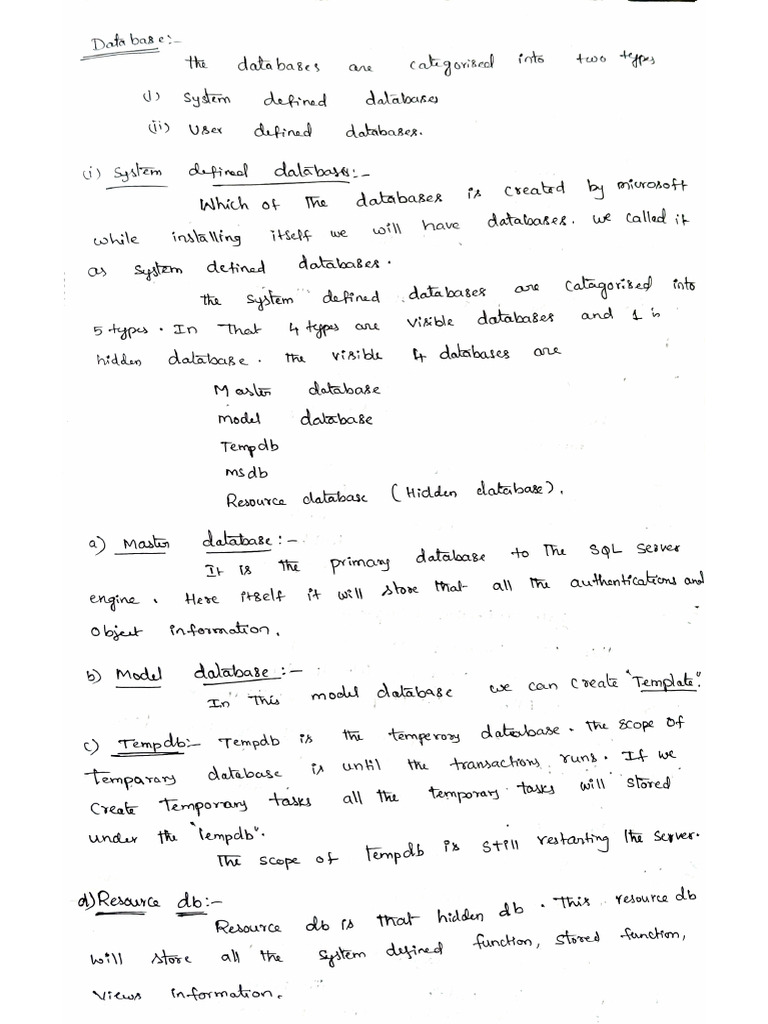 Database:-
the databases are categorised into two types
(i) System defined databases
(ii) User defined databases.
(i) System defined databases:-
Which of The databases is created by microsoft
while installing itself we will have databases. we called it
as system defined databases.
the system defined databases are catagorised into
5 types. In That 4 types are visible databases and 1 is
hidden database. the visible 4 databases are
Master database
model database
Tempdb
msdb
Resource database (Hidden database).
a) Master database:-
It is the primary database to The SQL Server
engine. Here itself it will store that all the authentications and
Object information.
b) Model database:-
In This model database we can create "Template".
c) Tempdb:- Tempdb is the temperory database. the scope of
Temparary database is until the transactions runs. If we
Create Temporary tasks all the temporary tasks will stored
under the "Tempdb".
The scope of Tempdb is still restarting the server.
d) Resource db:-
Resource db is that hidden db. This resource db
will store all the system defined function, stored function,
views information.